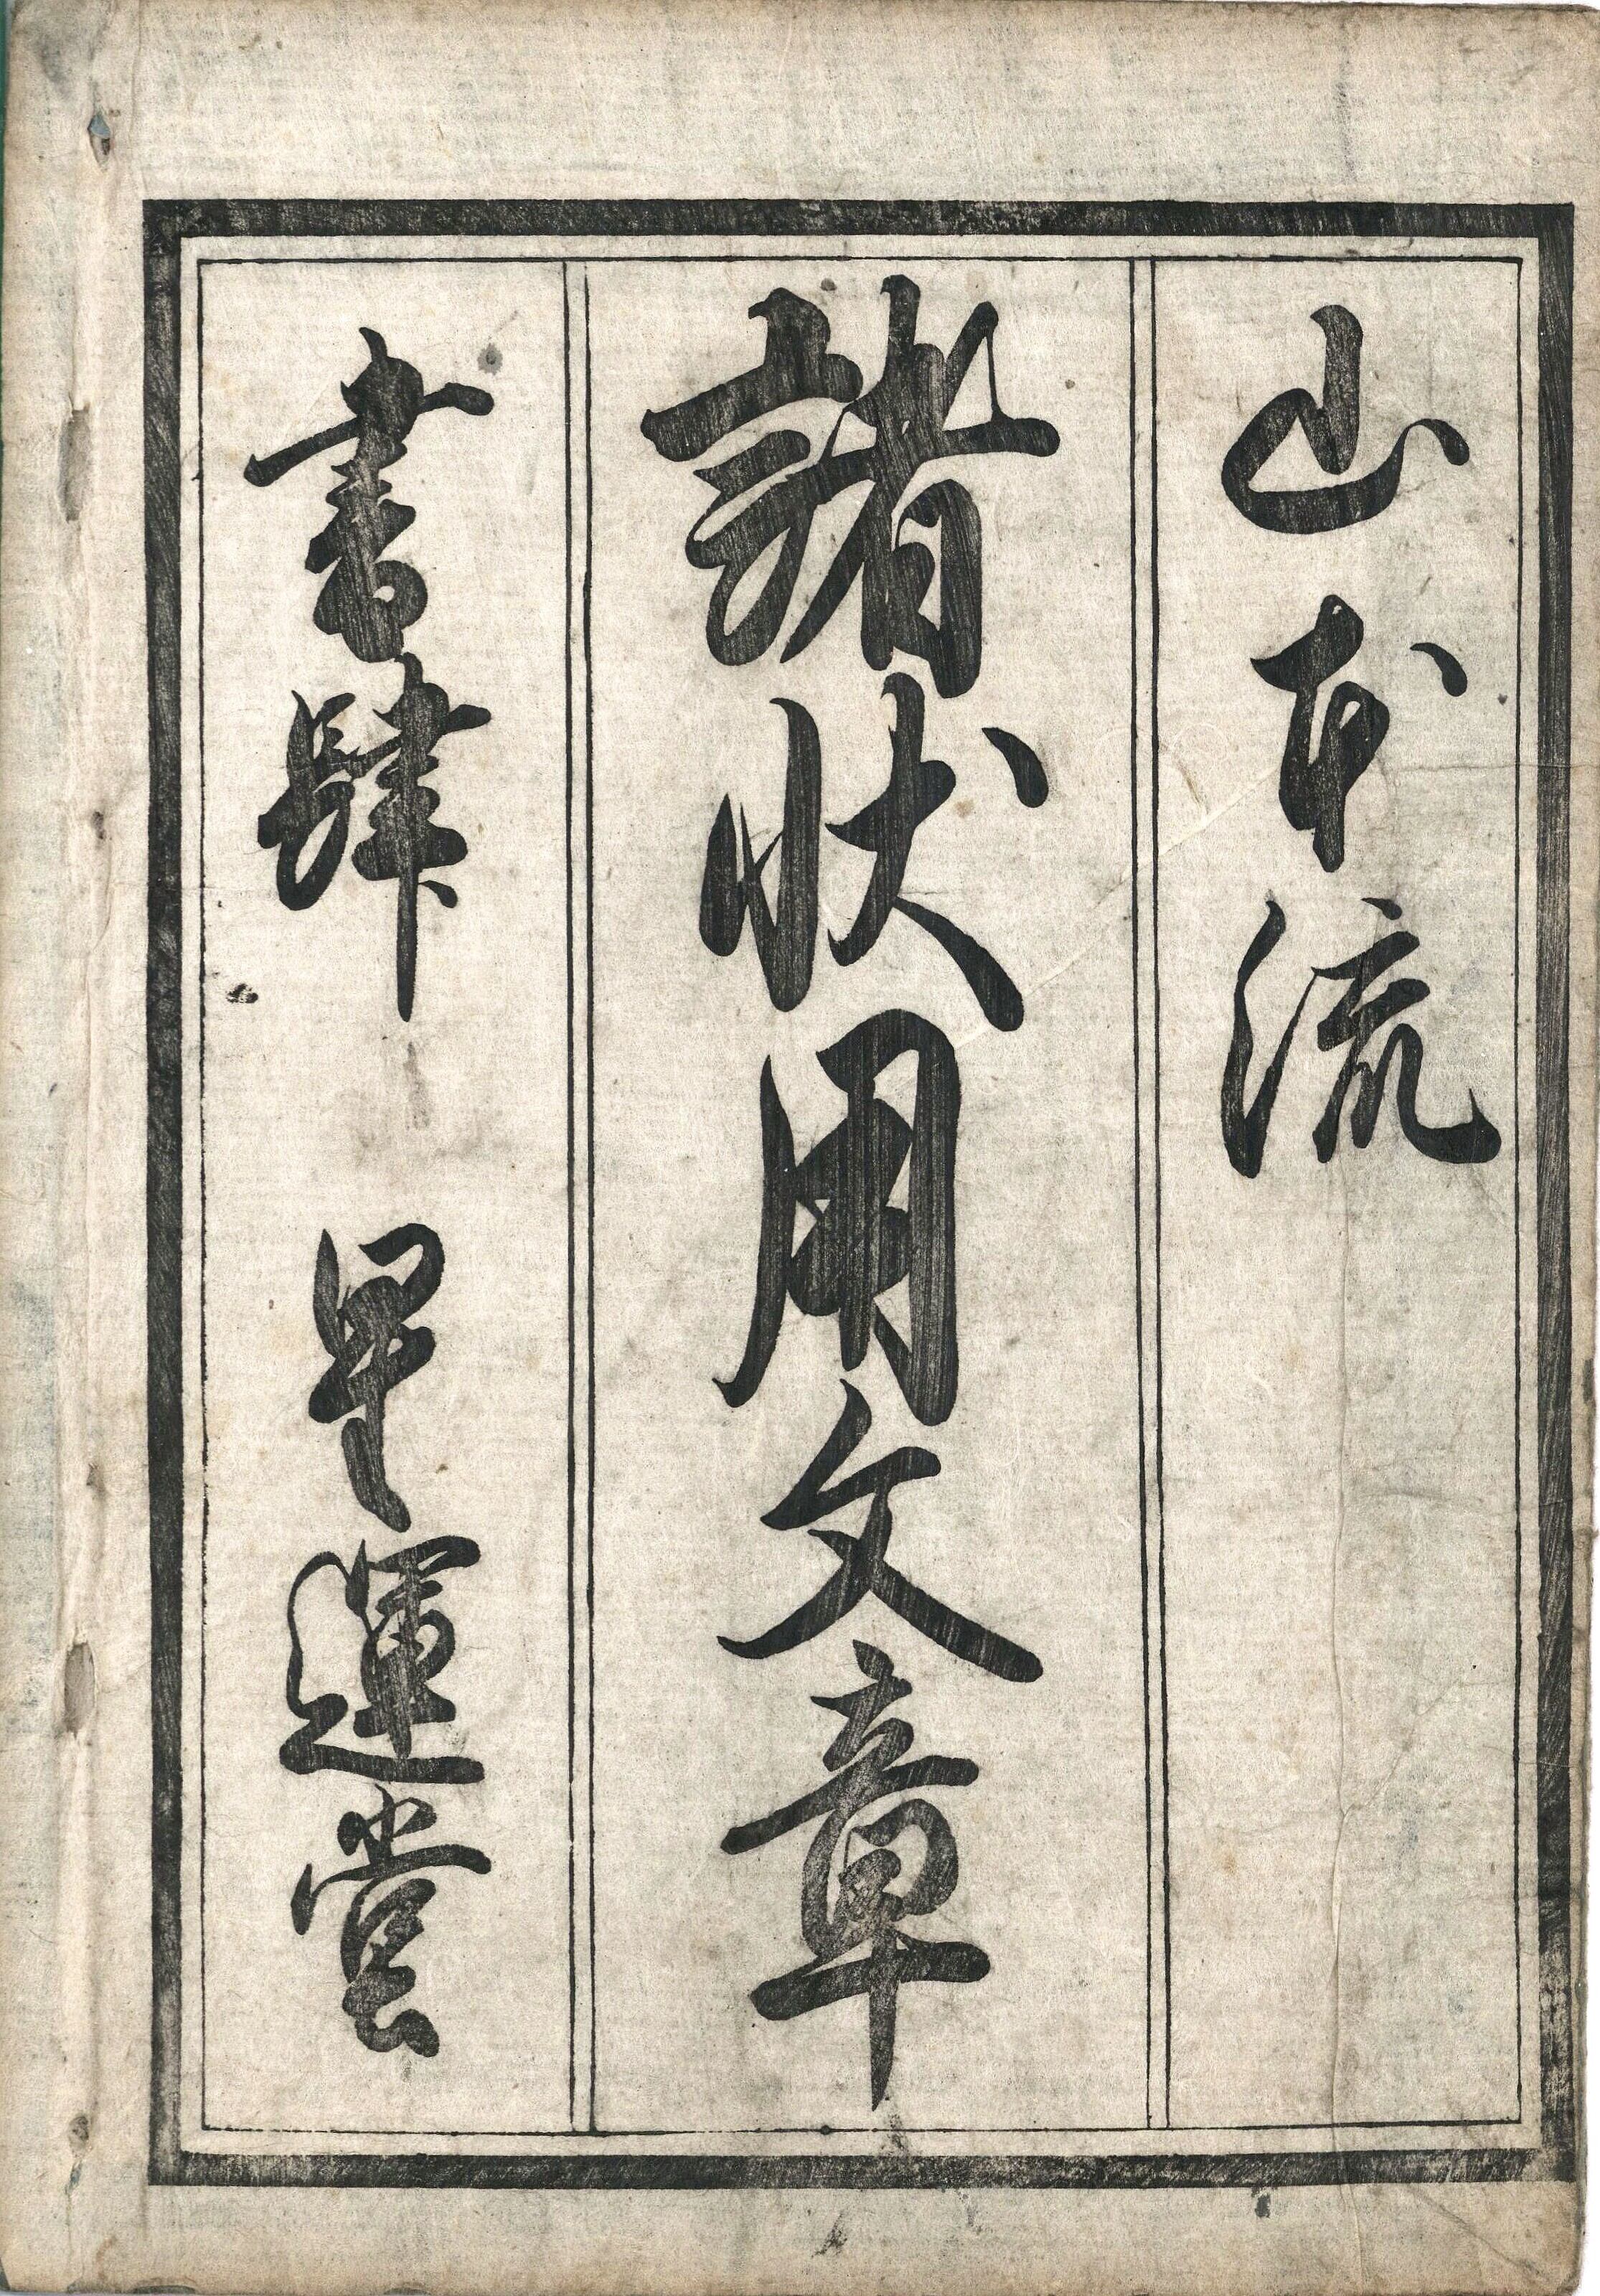 山本流
諸状用文章
書肆 星運堂